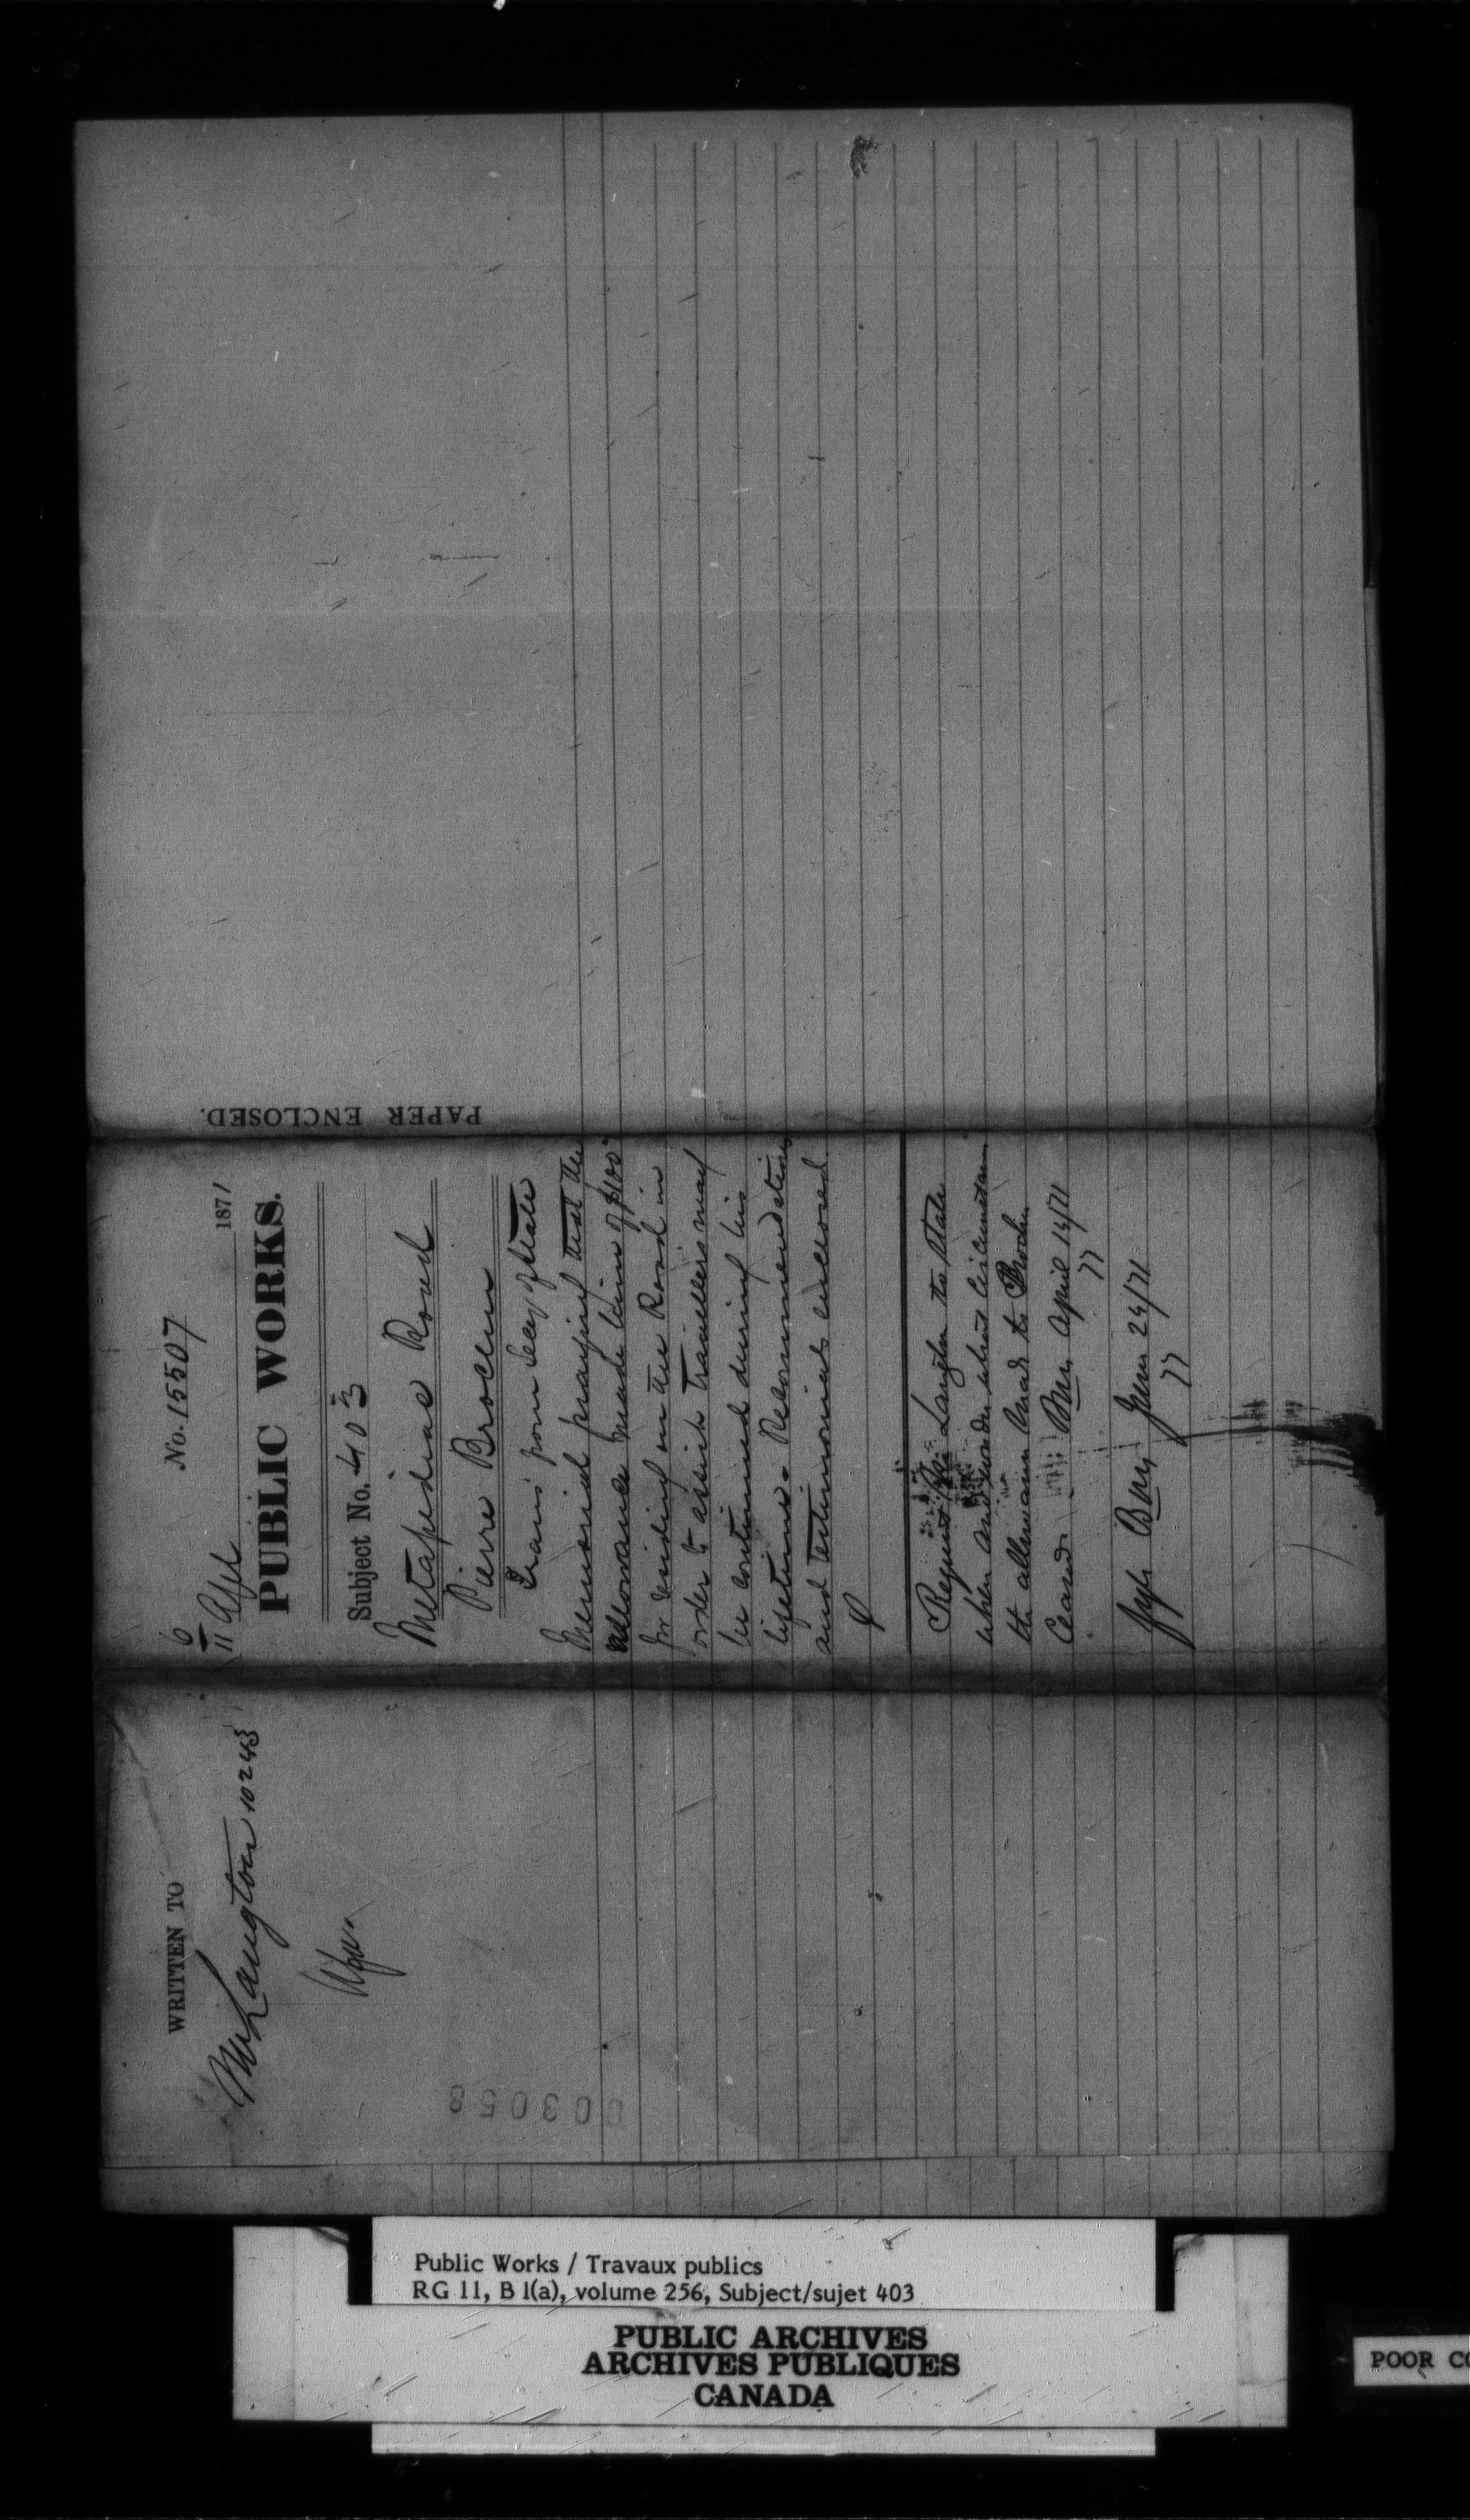 No. 15507
6
11 Apl 1871
PUBLIC WORKS.
Subject No. 403
Metapediac Road
Pierre Brochu
Trans' from Secy of State
Memorial praying that the
allowance made him of $100
for residing on the Road in
order to assist travellers may
be continued during his
lifetime. Recommendations
and testimonials enclosed.
Request Mr Langton to State
when and under what circumstances
the allowance made to Brochu
Ceased. April 14/71
June 24/71
PAPER ENCLOSED.
WRITTEN TO
Mr Langton 10243
003058
Public Works / Travaux publics
RG 11, B 1(a), volume 256, Subject/sujet 403
PUBLIC ARCHIVES
ARCHIVES PUBLIQUES
CANADA
POOR CO